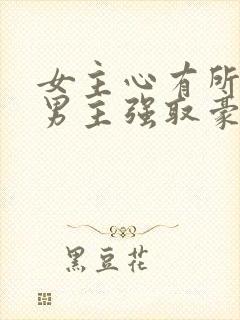 女主心有所
男主强取豪
黑豆花